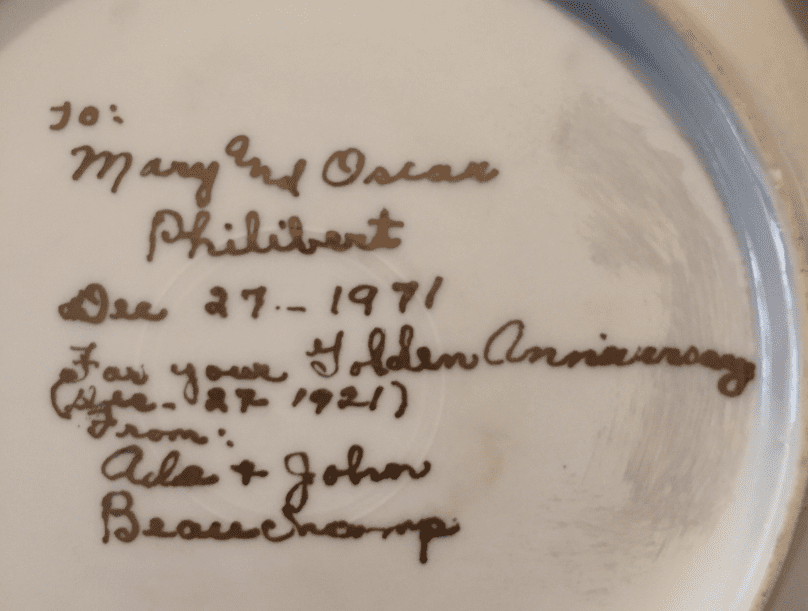 To:
Mary And Oscar
Philibert
Dec 27 - 1971
For your Golden Anniversary
(Dec - 27 1921)
From:
Ada + John
Beauchamp